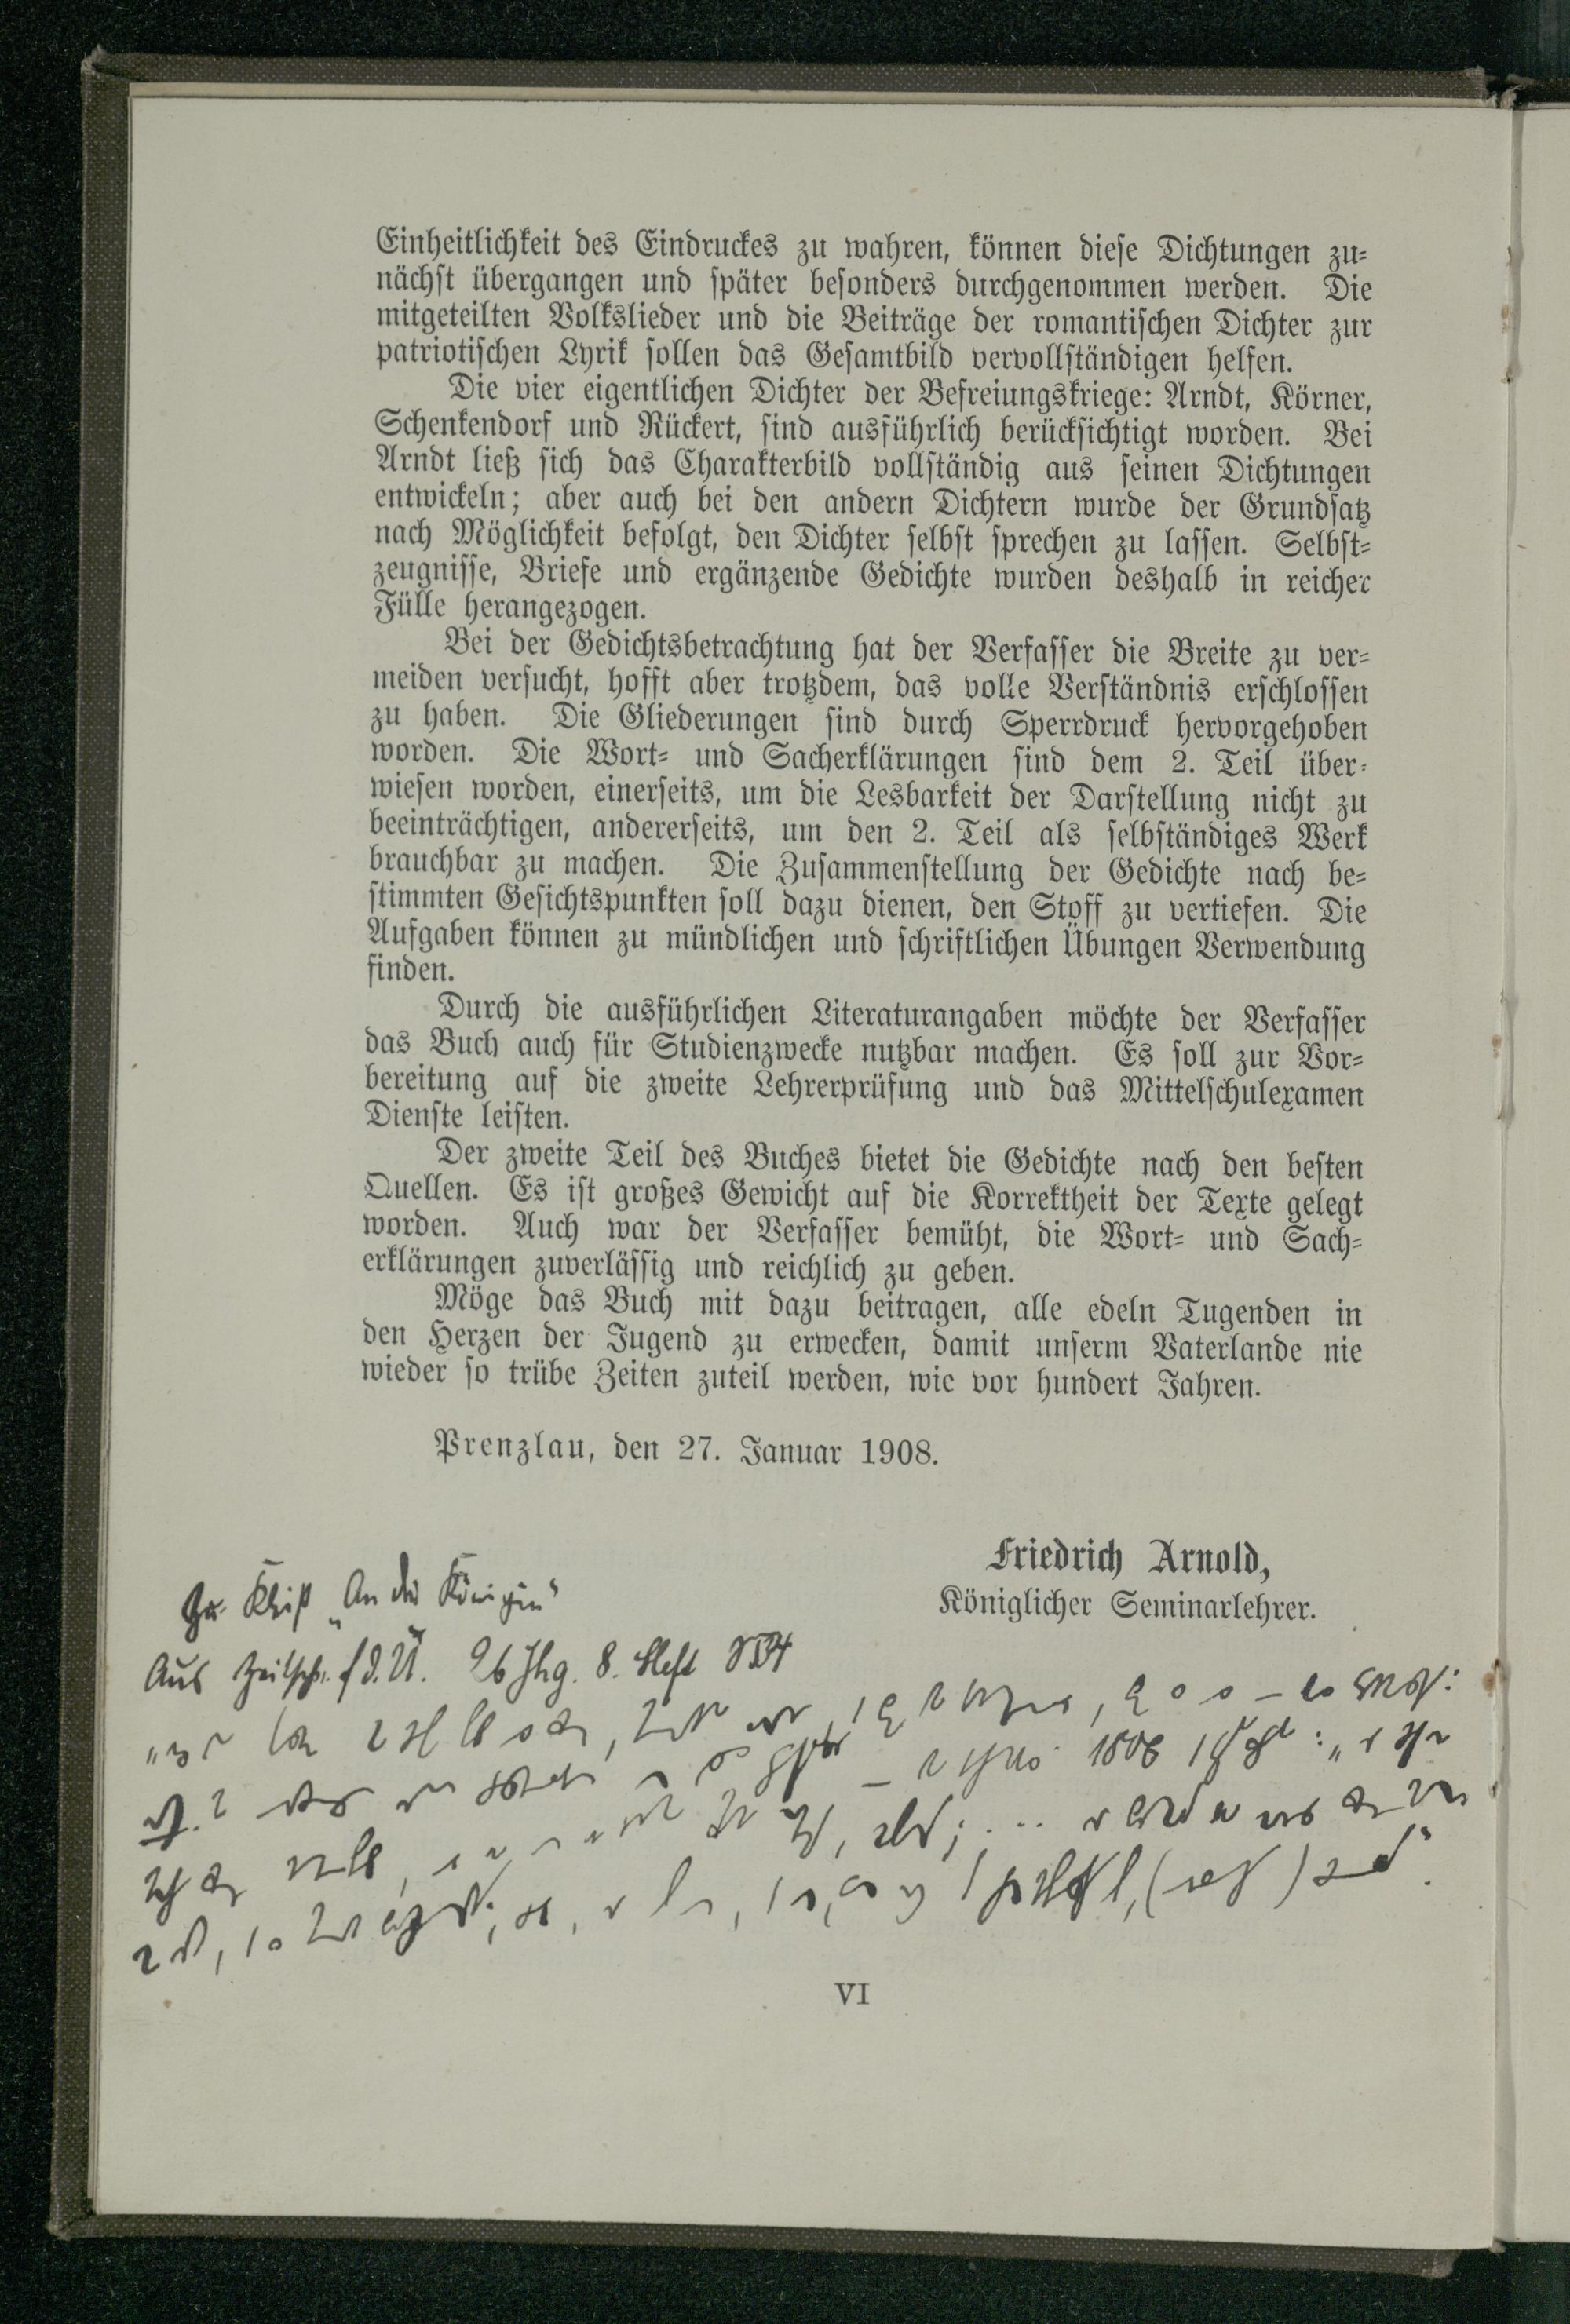 Einheitlichkeit des Eindruckes zu wahren, können diese Dichtungen zu-
nächst übergangen und später besonders durchgenommen werden. Die
mitgeteilten Volkslieder und die Beiträge der romantischen Dichter zur
patriotischen Lyrik sollen das Gesamtbild vervollständigen helfen.
Die vier eigentlichen Dichter der Befreiungskriege: Arndt, Körner,
Schenkendorf und Rückert, sind ausführlich berücksichtigt worden. Bei
Arndt ließ sich das Charakterbild vollständig aus seinen Dichtungen
entwickeln; aber auch bei den andern Dichtern wurde der Grundsatz
nach Möglichkeit befolgt, den Dichter selbst sprechen zu lassen. Selbst-
zeugnisse, Briefe und ergänzende Gedichte wurden deshalb in reicher
Fülle herangezogen.
Bei der Gedichtsbetrachtung hat der Verfasser die Breite zu ver-
meiden versucht, hofft aber trotzdem, das volle Verständnis erschlossen
zu haben. Die Gliederungen sind durch Sperrdruck hervorgehoben
worden. Die Wort- und Sacherklärungen sind dem 2. Teil über-
wiesen worden, einerseits, um die Lesbarkeit der Darstellung nicht zu
beeinträchtigen, andererseits, um den 2. Teil als selbständiges Werk
brauchbar zu machen. Die Zusammenstellung der Gedichte nach be-
stimmten Gesichtspunkten soll dazu dienen, den Stoff zu vertiefen. Die
Aufgaben können zu mündlichen und schriftlichen Übungen Verwendung
finden.
Durch die ausführlichen Literaturangaben möchte der Verfasser
das Buch auch für Studienzwecke nutzbar machen. Es soll zur Vor-
bereitung auf die zweite Lehrerprüfung und das Mittelschulexamen
Dienste leisten.
Der zweite Teil des Buches bietet die Gedichte nach den besten
Quellen. Es ist großes Gewicht auf die Korrektheit der Texte gelegt
worden. Auch war der Verfasser bemüht, die Wort- und Sach-
erklärungen zuverlässig und reichlich zu geben.
Möge das Buch mit dazu beitragen, alle edeln Tugenden in
den Herzen der Jugend zu erwecken, damit unserm Vaterlande nie
wieder so trübe Zeiten zuteil werden, wie vor hundert Jahren.
Prenzlau, den 27. Januar 1908.
Friedrich Arnold,
Königlicher Seminarlehrer.
Zu Kleist „An die Königin"
Aus Zeitschr. f. d. U. 26 Jhg. 8. Heft
1806
VI